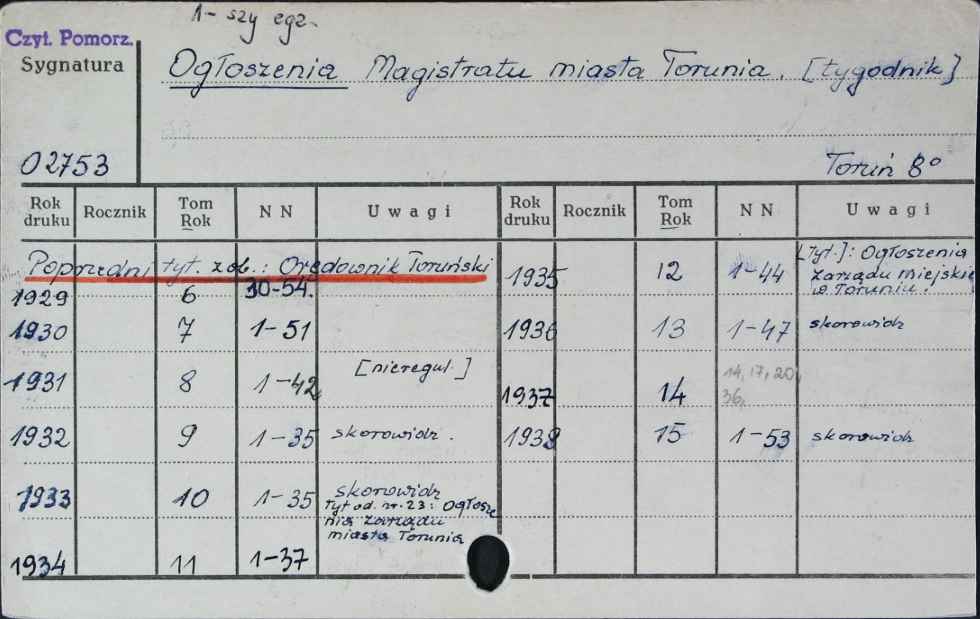 1-szy egz.
Czyt. Pomorz.
Sygnatura
Ogłoszenia Magistratu miasta Torunia. [tygodnik]
02753
Toruń 8°
Rok druku Rocznik Tom Rok N N Uwagi Rok druku Rocznik Tom Rok N N Uwagi
Poprzedni tyt. zob.: Orędownik Toruński
1929 6 30-54.
1930 7 1-51
1931 8 1-42, [nieregul.]
1932 9 1-35 skorowidz.
1933 10 1-35 skorowidz
Tyt od. nr. 23: Ogłosze
nia Zarządu
miasta Torunia
1934 11 1-37
1935 12 1-44 [Tyt.]: Ogłoszenia
Zarządu Miejskie
w Toruniu.
1936 13 1-47 skorowidz
1937 14 14, 17, 20,
36,
1938 15 1-53 skorowidz